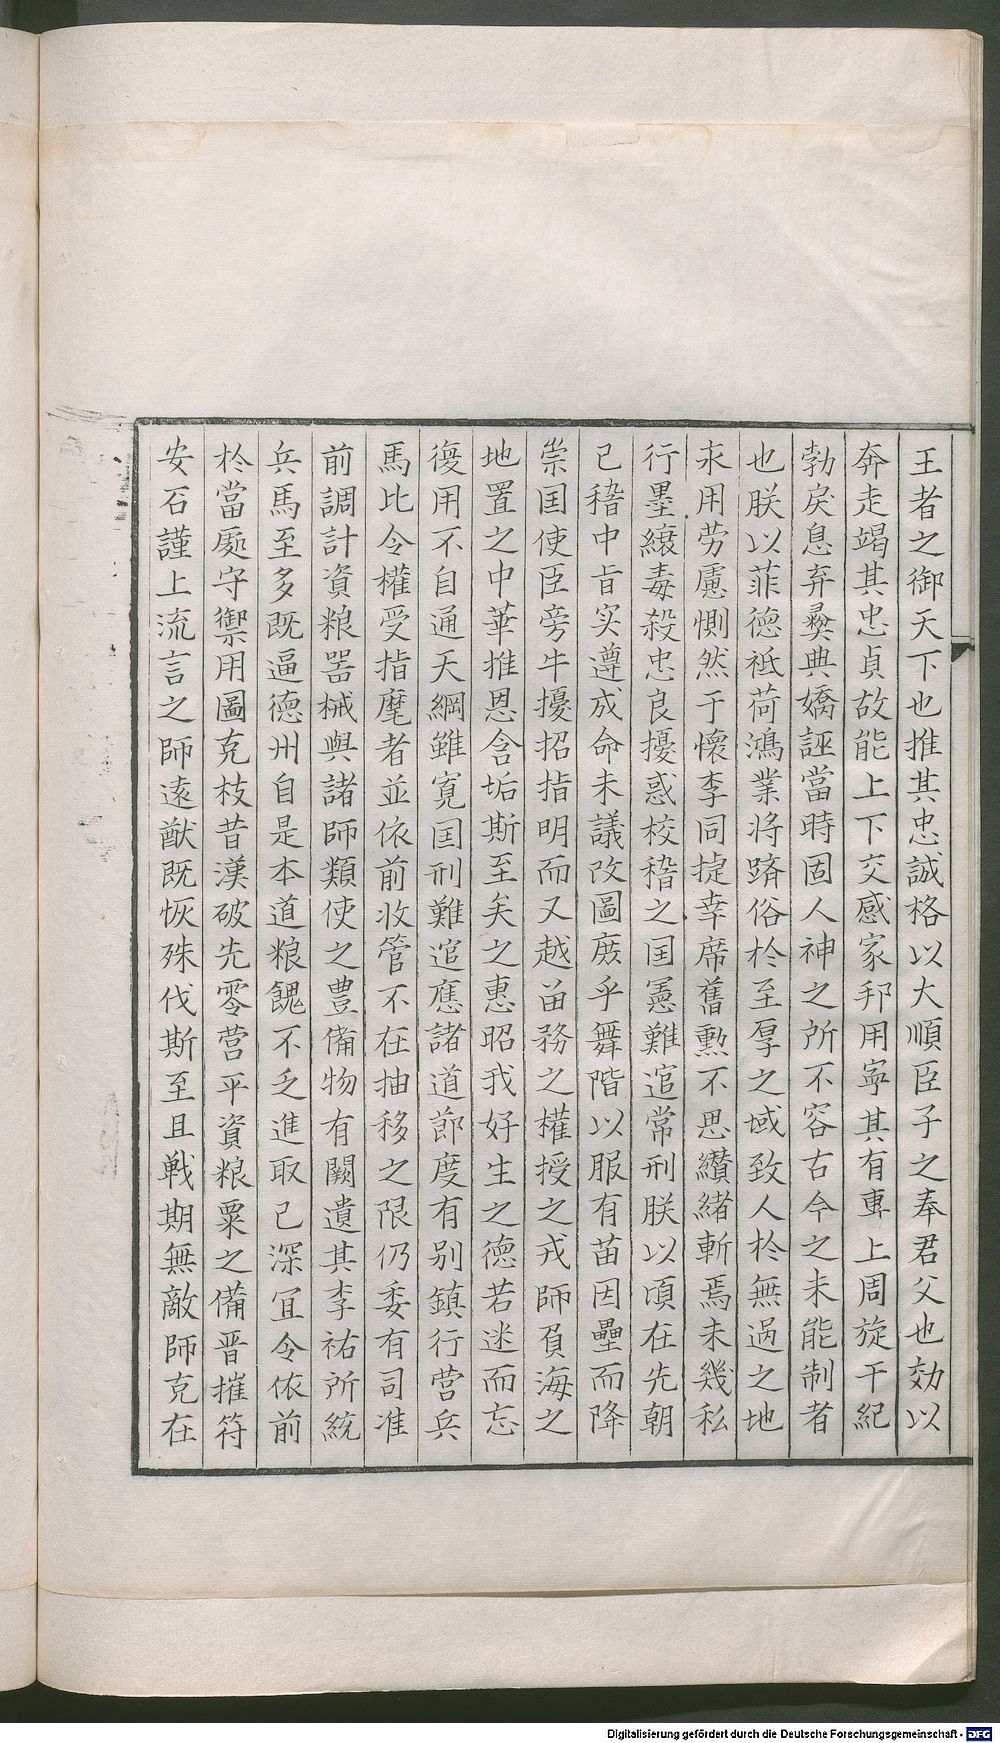 王者之御天下也推其忠誠格以大順臣子之奉君父也効以
奔走竭其忠貞故能上下交感家邦用寧其有專上周旋干紀
勃戾息弃彜典嬌誣當時固人神之所不容古今之未能制者
也朕以菲德祗荷鴻業将躋俗於至厚之域致人於無過之地
永用劳慮惻然于懷李同捷幸席舊勲不思纉緒斬焉未幾私
行墨縗毒殺忠良擾惑校稽之国憲難逭常刑朕以頃在先朝
已稽中旨实遵成命未議改圖庻乎舞階以服有苗因壘而降
崇囯使臣旁牛擾招指明而又越畄務之權授之戎師負海之
地置之中華推恩含垢斯至矣之惠昭我好生之德若迷而忘
復用不自通天綱雖寛囯刑難逭應諸道節度有别鎮行营兵
馬比令權受指麾者並依前收管不在抽移之限仍委有司准
前調計資粮噐械與諸師類使之豊備物有闕遺其李祐所統
兵馬至多既逼德州自是本道粮餽不乏進取已深宜令依前
於當䖏守禦用圖克枝昔漢破先零营平資粮粟之備晋摧符
安石謹上流言之師逺猷既恢殊伐斯至且戦期無敵師克在
Digitalisierung gefördert durch die Deutsche Forschungsgemeinschaft - DFG